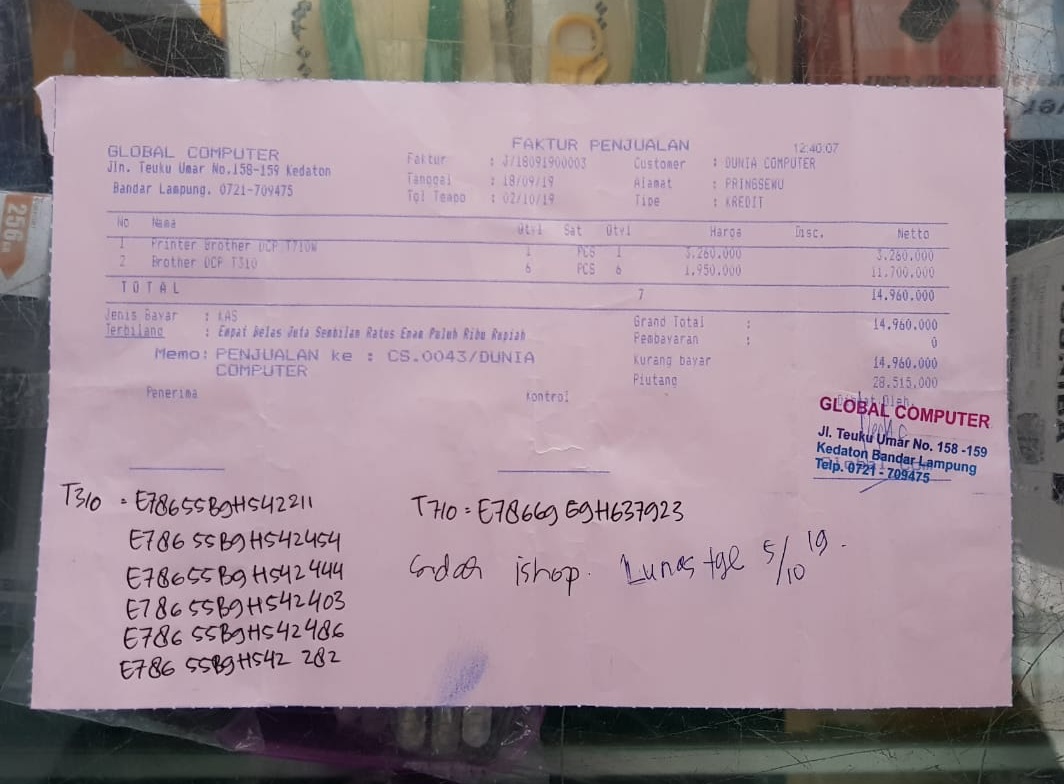 FAKTUR PENJUALAN 12:40:07
GLOBAL COMPUTER
Jln. Teuku Umar No.158-159 Kedaton
Bandar Lampung. 0721-709475
Faktur : J/18091900003
Tanggal : 18/09/19
Tgl Tempo : 02/10/19
Customer : DUNIA COMPUTER
Alamat : PRINGSEWU
Tipe : KREDIT
No Nama Qty1 Sat Qty1 Harga Disc. Netto
1 Printer Brother DCP T710W 1 PCS 1 3.260.000 3.260.000
2 Brother DCP T310 6 PCS 6 1.950.000 11.700.000
TOTAL 7 14.960.000
Jenis Bayar : KAS
Terbilang : Empat Belas Juta Sembilan Ratus Enam Puluh Ribu Rupiah
Memo: PENJUALAN ke : CS.0043/DUNIA
COMPUTER
Grand Total : 14.960.000
Pembayaran : 0
Kurang bayar 14.960.000
Piutang 28.515.000
Penerima Kontrol
GLOBAL COMPUTER
Jl. Teuku Umar No. 158 -159
Kedaton Bandar Lampung
Telp. 0721 - 709475
T310 = E78655B9H542211
E78655B9H542454
E78655B9H542444
E78655B9H542403
E78655B9H542486
E78655B9H542282
T710 = E78669E9H637923
ishop. Lunas tgl 5/10 19.
256